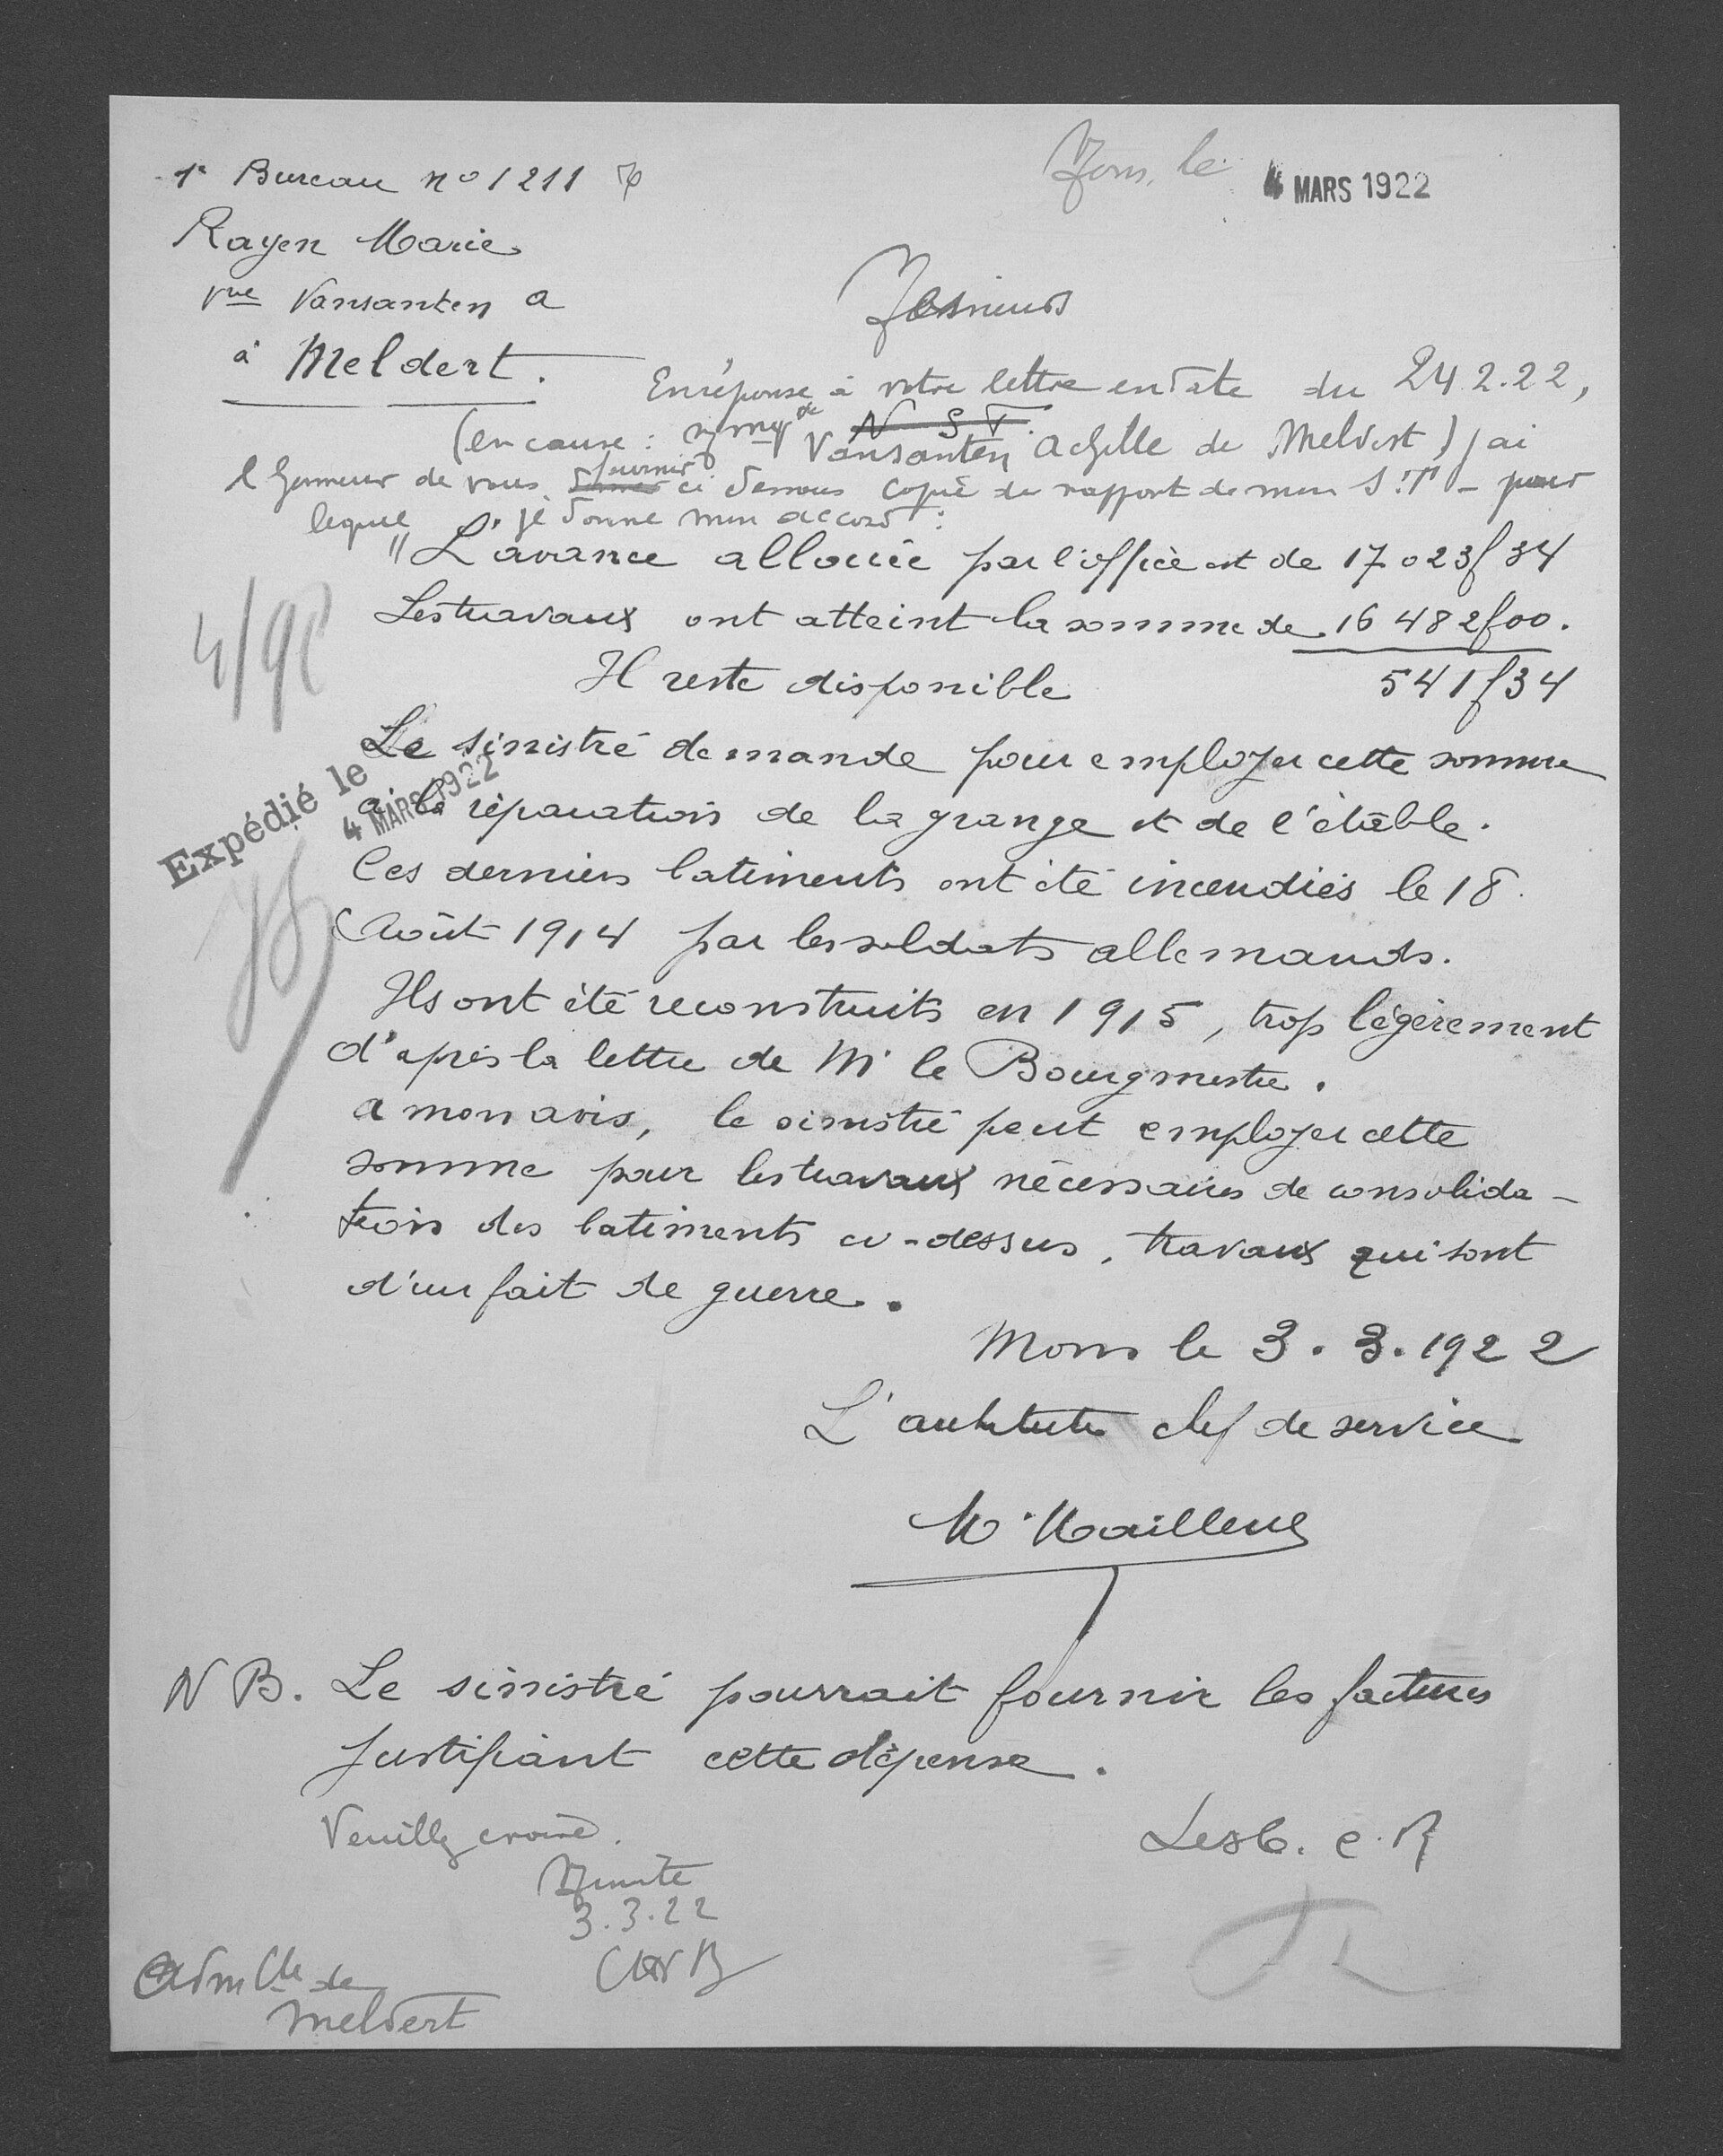 1r Bureau no 1211
Mons, le 4 MARS 1922
Rayen Marie
vve Vansanten A
à Meldert.
Messieurs
En réponse à votre lettre en date du 24.2.22,
N S T.
(en cause: Vansanten Achille de Meldert) j'ai
l'honneur de vous fournir ci dessous copie du rapport de mon S.T. - pour
lequel je donne mon accord:
"L'avance allouée par l'office est de 17.023f34
Les travaux ont atteint la somme de 16 482f00.
Il reste disponible 541f34
4/90
Le sinistré demande pour employer cette somme
à la réparation de la grange et de l'étable.
Expédié le
4 MARS 1922
Ces derniers batiments ont été incendiés le 18
Août 1914 par les soldats allemands.
Ils ont été reconstruits en 1915, trop légèrement
d'après la lettre de Mr le Bourgmestre.
a mon avis, le sinistré peut employer cette
somme pour les travaux nécessaires de consolida-
tion des batiments ci-dessus, travaux qui sont
d'un fait de guerre.
Mons le 3.3.1922
L'architecte chef de service
NB. Le sinistré pourrait fournir les factures
justifiant cette dépense.
Veuillez croire.
Minute
3.3.22
Adm Cle de
Meldert